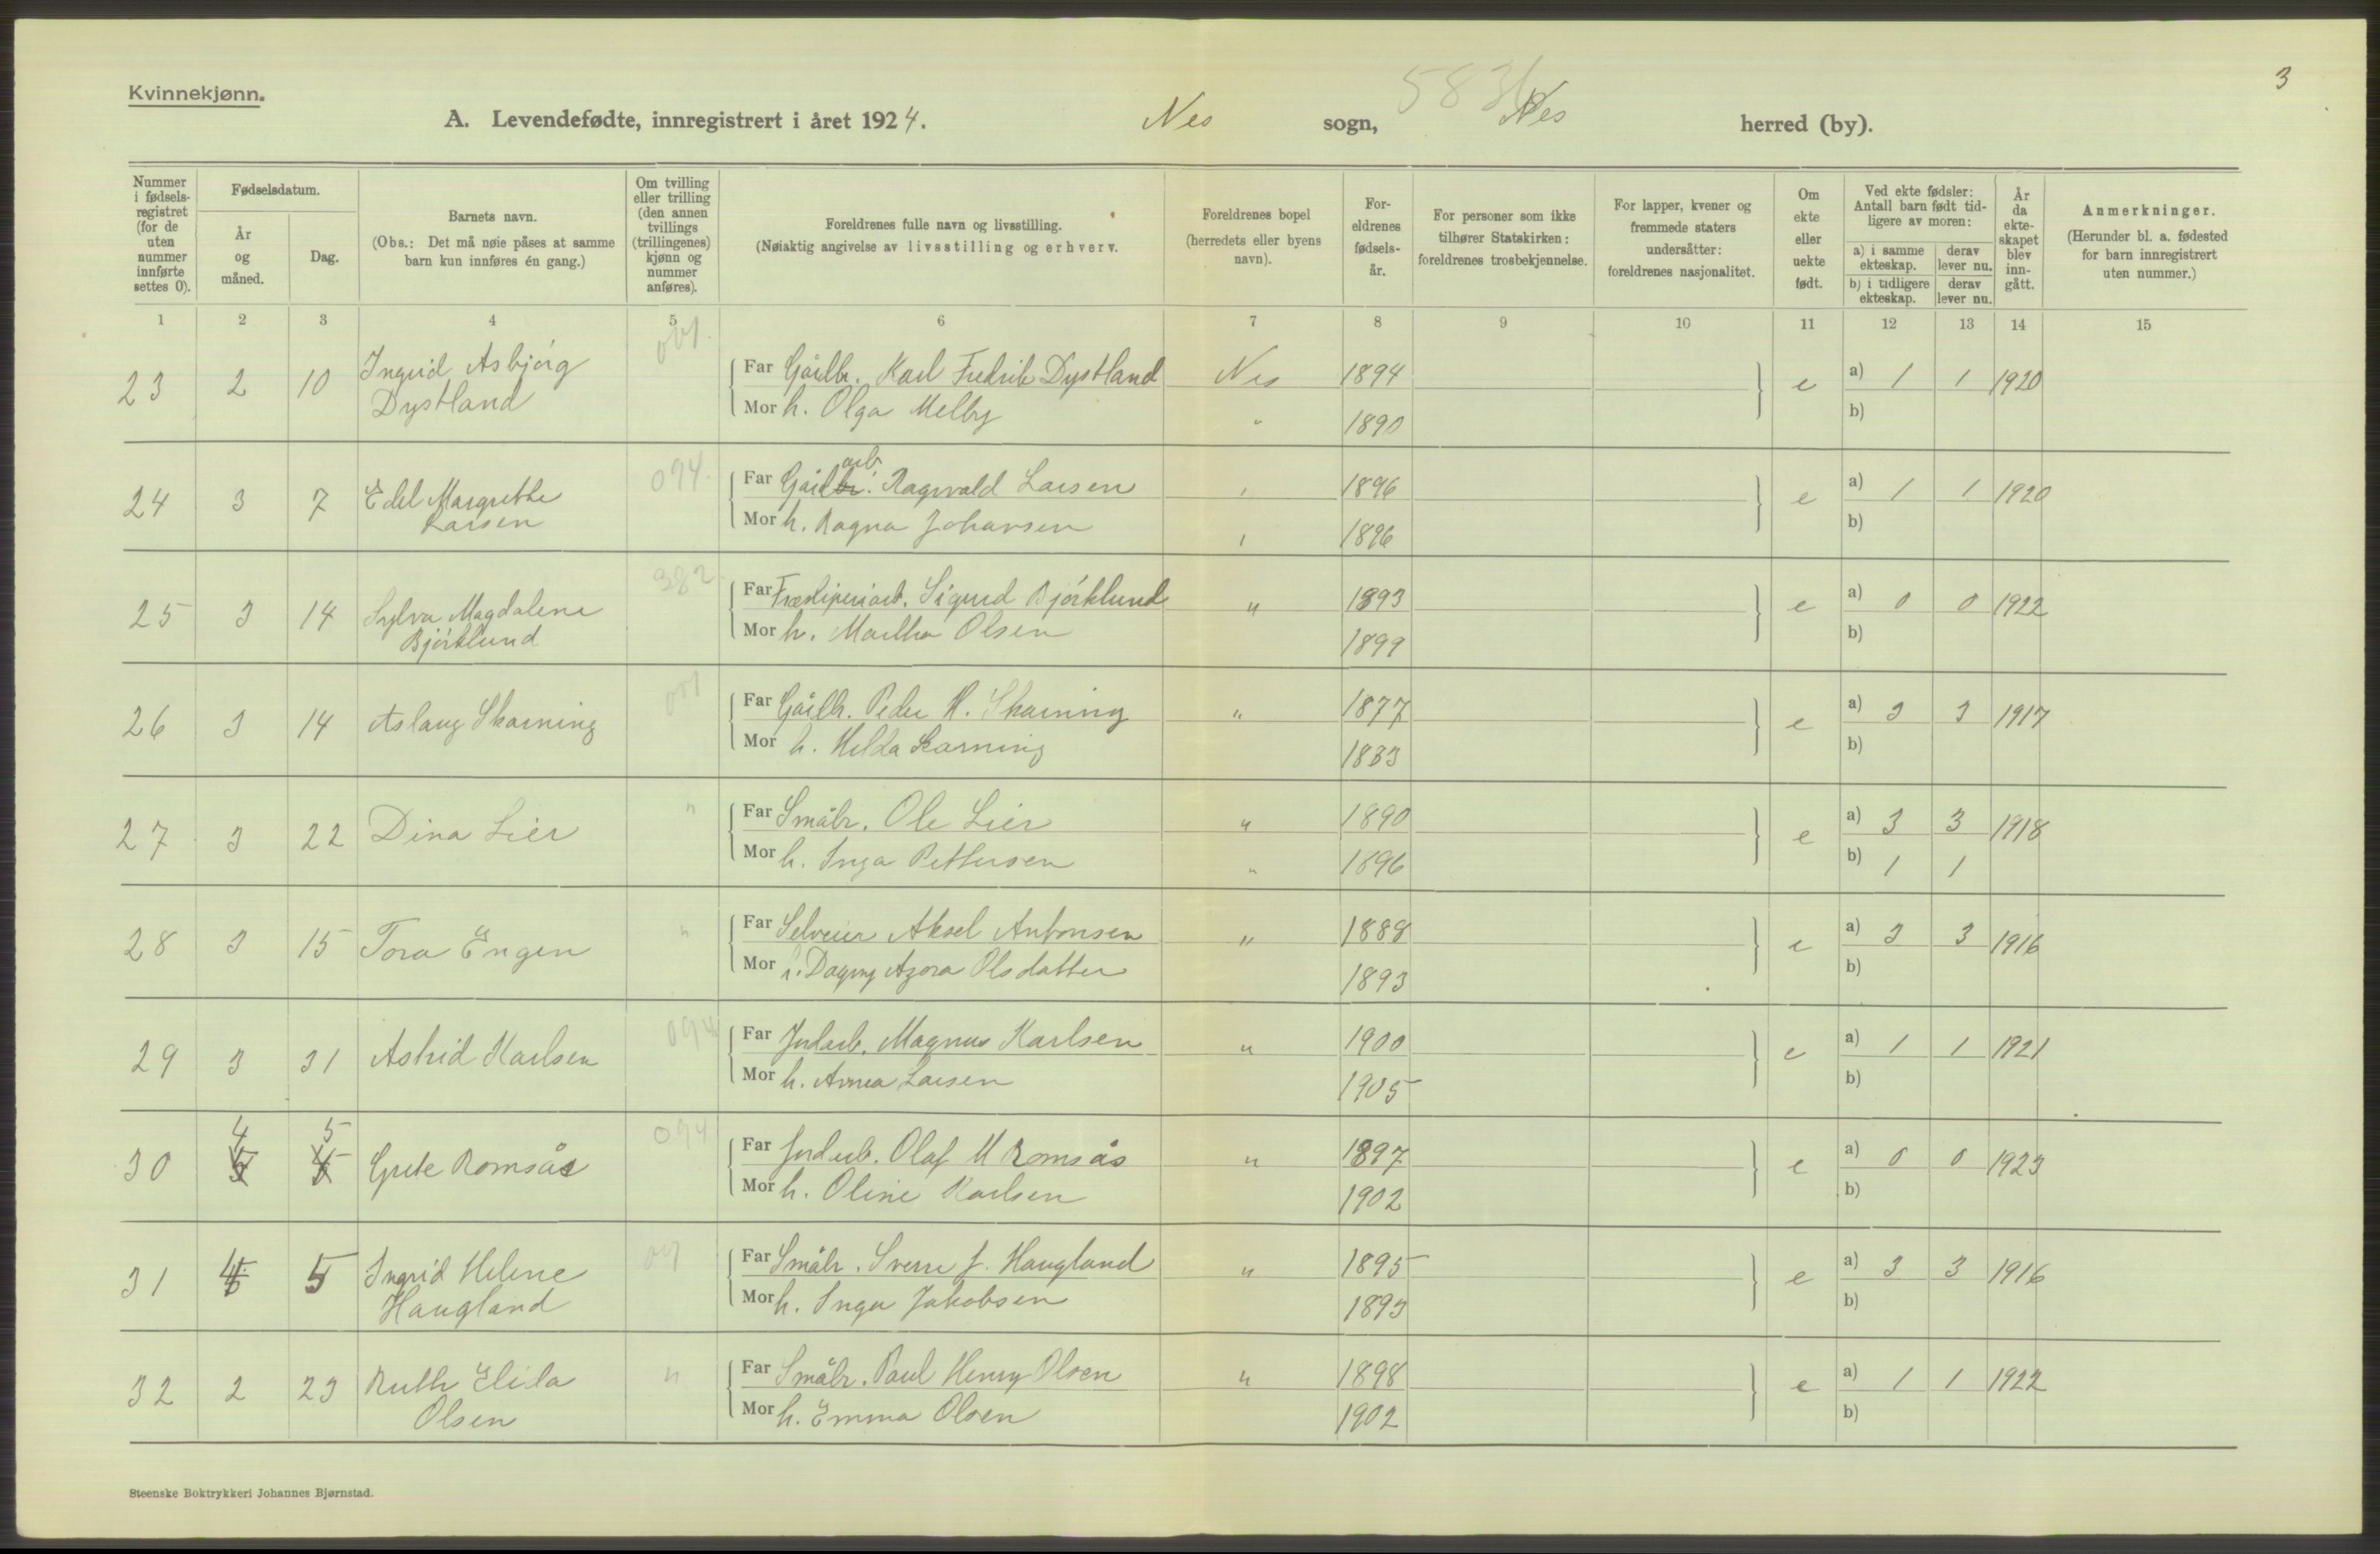 3
Kvinnekjønn.
583
A. Levendefødte, innregistrert i året 1924. Nes sogn, Nes herred (by).
Nummer i fødsels-registret (for de uten nummer innførte settes 0).
Fødselsdatum.
År og måned.
Dag.
Barnets navn.
(Obs.: Det må nøie påses at samme barn kun innføres én gang.)
Om tvilling eller trilling (den annen tvillings (trillingenes) kjønn og nummer anføres).
Foreldrenes fulle navn og livsstilling.
(Nøiaktig angivelse av livsstilling og erhverv.
Foreldrenes bopel (herredets eller byens navn).
For-eldrenes fødsels-år.
For personer som ikke tilhører Statskirken: foreldrenes trosbekjennelse.
For lapper, kvener og fremmede staters undersåtter: foreldrenes nasjonalitet.
Om ekte eller uekte født.
Ved ekte fødsler: Antall barn født tid-ligere av moren:
a) i samme ekteskap. derav lever nu.
b) i tidligere ekteskap. derav lever nu.
År da ekte-skapet blev inn-gått.
Anmerkninger.
(Herunder bl. a. fødested for barn innregistrert uten nummer.)
1 2 3 4 5 6 7 8 9 10 11 12 13 14 15
23 2 10 Ingrid Asbjörg Dystland 001. Far Gårdbr. Karl Fredrik Dystland Nes 1894 e a) 1 1 1920
Mor h. Olga Melby " 1890 b)
24 3 7 Edel Margrethe Larsen 094. Far Gårdarb. Ragnvald Larsen " 1896 e a) 1 1 1920
Mor h. Ragna Johansen " 1896 b)
25 3 14 Sylva Magdalene Björklund 382. Far Træsliperiarb. Sigurd Björklund " 1893 e a) 0 0 1922
Mor h. Martha Olsen 1899 b)
26 3 14 Aslaug Skarning 001 Far Gårdb. Peder H. Skarning " 1877 e a) 3 3 1917
Mor h. Helda Skarning 1883 b)
27 3 22 Dina Lier " Far Småbr. Ole Lier " 1890 e a) 3 3 1918
Mor h. Inga Pettersen " 1896 b) 1 1
28 3 15 Tora Engen " Far Selveier Aksel Antonsen " 1888 e a) 3 3 1916
Mor h. Dagny Agora Olsdatter 1893 b)
29 3 31 Astrid Karlsen 094 Far Jordarb. Magnus Karlsen " 1900 e a) 1 1 1921
Mor h. Anna Larsen 1905 b)
30 4 5 Grete Romsås 094 Far Jordarb. Olaf M Romsås " 1897 e a) 0 0 1923
Mor h. Oline Karlsen 1902 b)
31 4 5 Ingrid Helene Haugland 001 Far Småbr. Sverre J. Haugland " 1895 e a) 3 3 1916
Mor h. Inga Jakobsen 1893 b)
32 2 23 Ruth Elida Olsen " Far Småbr. Paul Henry Olsen " 1898 e a) 1 1 1922
Mor h. Emma Olsen 1902 b)
Steenske Boktrykkeri Johannes Bjørnstad.